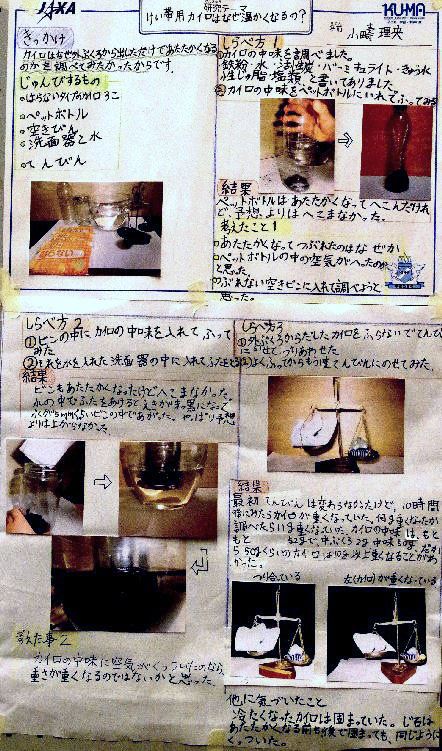 JAXA
研究テーマ
けい帯用カイロはなぜ温かくなるの?
KUMA
小崎 理央
きっかけ
カイロはなぜ外ぶくろから出しただけであたたかくなる
のかを調べてみたかったからです。
じゅんびするもの
はらないタイプのカイロ3こ
ペットボトル
空きびん
洗面器と水
てんびん
しらべ方1
①カイロの中味を調べました。
鉄粉・水・活性炭・バーミキュライト・きゅう水
塩類と書いてありました
②カイロの中味をペットボトルにいれてふってみる
結果
ペットボトルはあたたかくなってへこんだけれ
ど、予想よりはへこまなかった。
考えたこと1
あたたかくなってつぶれたのはなぜか
ペットボトルの中の空気がへったのかな
と思った。
つぶれない空きビンに入れて調べようと
思った。
しらべ方2
①ビンの中にカイロの中味を入れてふって
みた
②それを水を入れた洗面器の中に入れてふたを
結果
ビンもあたたかくなったけどへこまなかった。
水の中でふたをあけると
水が5mmくらいビンの中であがった。やっぱり予想
よりは上がらなかった。
考えた事2
カイロの中味に空気がくっついたのなら、
重さが重くなるのではないかと思った。
しらべ方3
①外ぶくろからだしたカイロをふらないでてんびん
にのせてつりあわせた
②よくふってからもう1度てんびんにのせてみた。
結果
最初てんびんは変わらなかったけど、10時間
後にみたらカイロが重くなっていた。何g重くなったか
調べたら1g重くなっていた。カイロの中味は、もと
もと
かった。
つり合っている
左(カイロ)が重くなっている
他に気づいたこと
冷たくなったカイロは固まっていた。じ石は
あたたかくなる前も後で固まっても、同じように
くっついた。